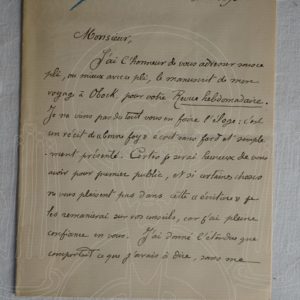 Monsieur,
J'ai l'honneur de vous adresser sous ce
pli, ou mieux avec ce pli, le manuscrit de mon
voyage à Obock pour votre Revue hebdomadaire.
Je ne veux pas du tout vous en faire l'éloge : c'est
un récit de bonne foy, écrit sans fard et simple-
ment présenté. Certes je serai heureux de vous
avoir pour premier public, et si certaines choses
ne vous plaisent pas dans cette « écriture » je
les remanierai sur vos conseils, car j'ai pleine
confiance en vous. J'ai donné l'étendue que
comportait ce que j'avais à dire, sans me